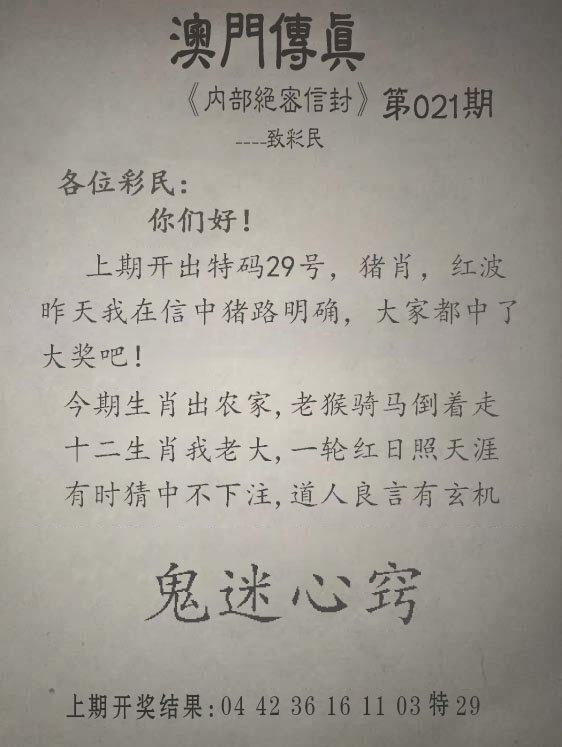 澳門傳眞
《内部絕密信封》第021期
----致彩民
各位彩民:
你们好!
上期开出特码29号，猪肖，红波
昨天我在信中猪路明确，大家都中了
大奖吧!
今期生肖出农家,老猴骑马倒着走
十二生肖我老大,一轮红日照天涯
有时猜中不下注,道人良言有玄机
鬼迷心窍
上期开奖结果:04 42 36 16 11 03 特29